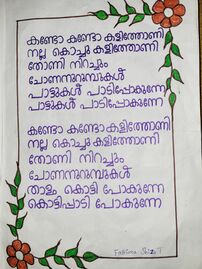 കണ്ടോ കണ്ടോ കളിത്തോണി
നല്ല കൊച്ചു കളിത്തോണി
തോണി നിറച്ചും
ചോണനുറുമ്പുകൾ
പാട്ടുകൾ പാടിപ്പോകുന്നേ
പാട്ടുകൾ പാടിപ്പോകുന്നേ
കണ്ടോ കണ്ടോ കളിത്തോണി
നല്ല കൊച്ചു കളിത്തോണി
തോണി നിറച്ചും
ചോണനുറുമ്പുകൾ
താളം കൊട്ടി പോകുന്നേ
കൊട്ടിപ്പാടി പോകുന്നേ
Fathima